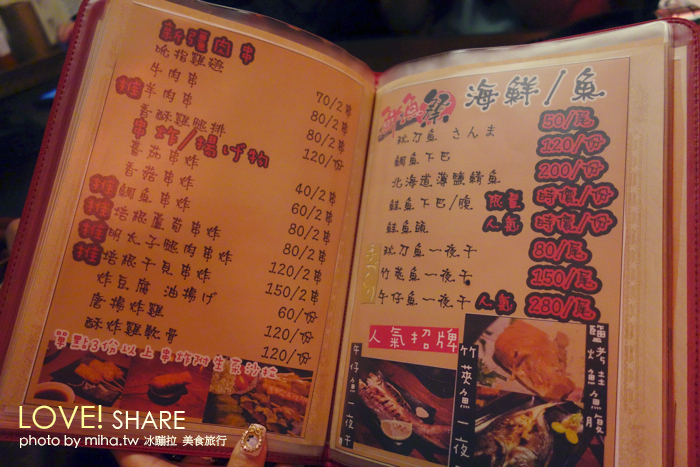 新漾肉串
吮指雞翅 70/2串
牛肉串 80/2串
推 羊肉串 80/2串
香酥雞腿排 120/份
串炸/揚げ物
番茄串炸 40/2串
香菇串炸 60/2串
推 鯛魚串炸 80/2串
推 培根蘆筍串炸 80/2串
推 明太子腿肉串炸 120/2串
推 培根干貝串炸 150/2串
炸豆腐 油揚げ 60/份
唐揚炸雞 120/份
酥炸雞軟骨 120/份
單點3份以上串炸附生菜沙拉
海鮮/魚
秋刀魚 さんま 50/尾
鯛魚下巴 120/份
北海道薄鹽鯖魚 200/份
鮭魚下巴/腹 限量 時價/份
鮭魚頭 人氣 時價/份
秋刀魚一夜干 80/尾
竹莢魚一夜干 150/尾
午仔魚一夜干 人氣 280/尾
人氣招牌
午仔魚一夜干
竹莢魚一夜干
鹽烤鮭魚腹
LOVE! SHARE
photo by miha.tw 冰蹦拉 美食旅行